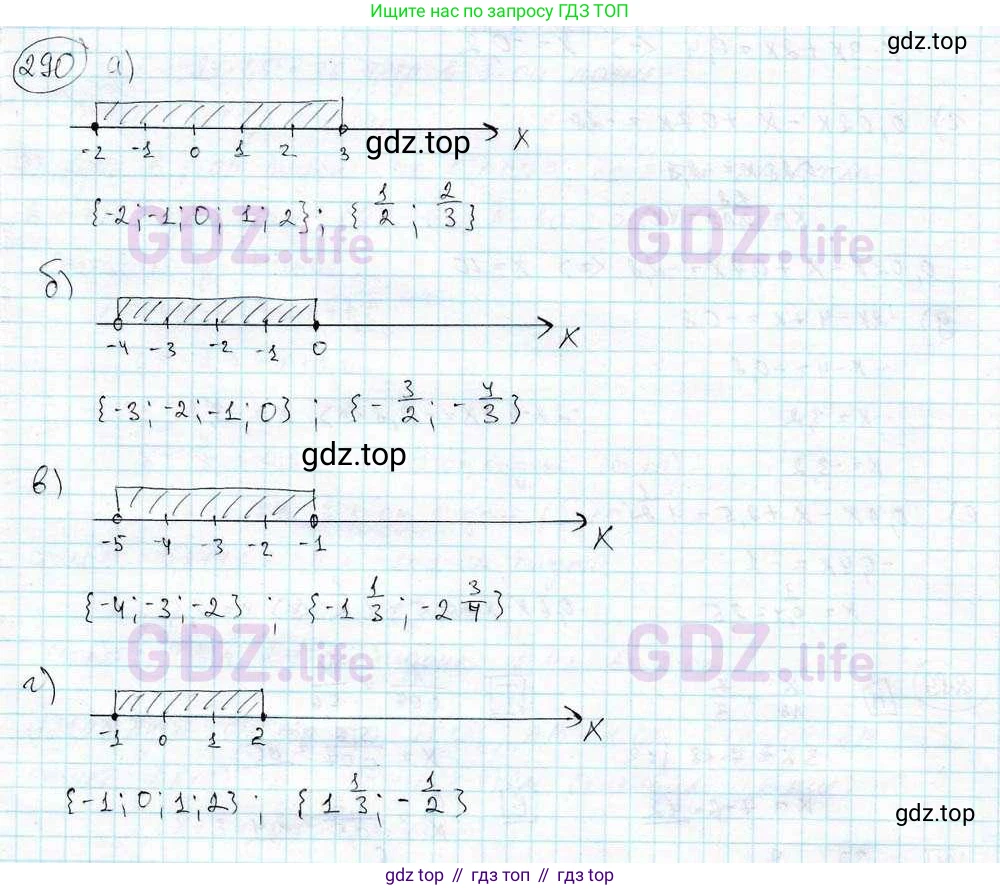 Ищите нас по запросу ГДЗ ТОП
gdz.top
290 а)
-2 -1 0 1 2 3 X
gdz.top
{-2; -1; 0; 1; 2}; {1/2; 2/3}
GDZ.life GDZ.life
б)
-4 -3 -2 -1 0 X
{-3; -2; -1; 0}; {-3/2; -4/3}
gdz.top
в)
-5 -4 -3 -2 -1 X
{-4; -3; -2}; {-1 1/3; -2 3/4}
GDZ.life GDZ.life
г)
-1 0 1 2 X
{-1; 0; 1; 2}; {1 1/3; -1/2}
gdz.top
gdz.top // гдз топ // gdz top